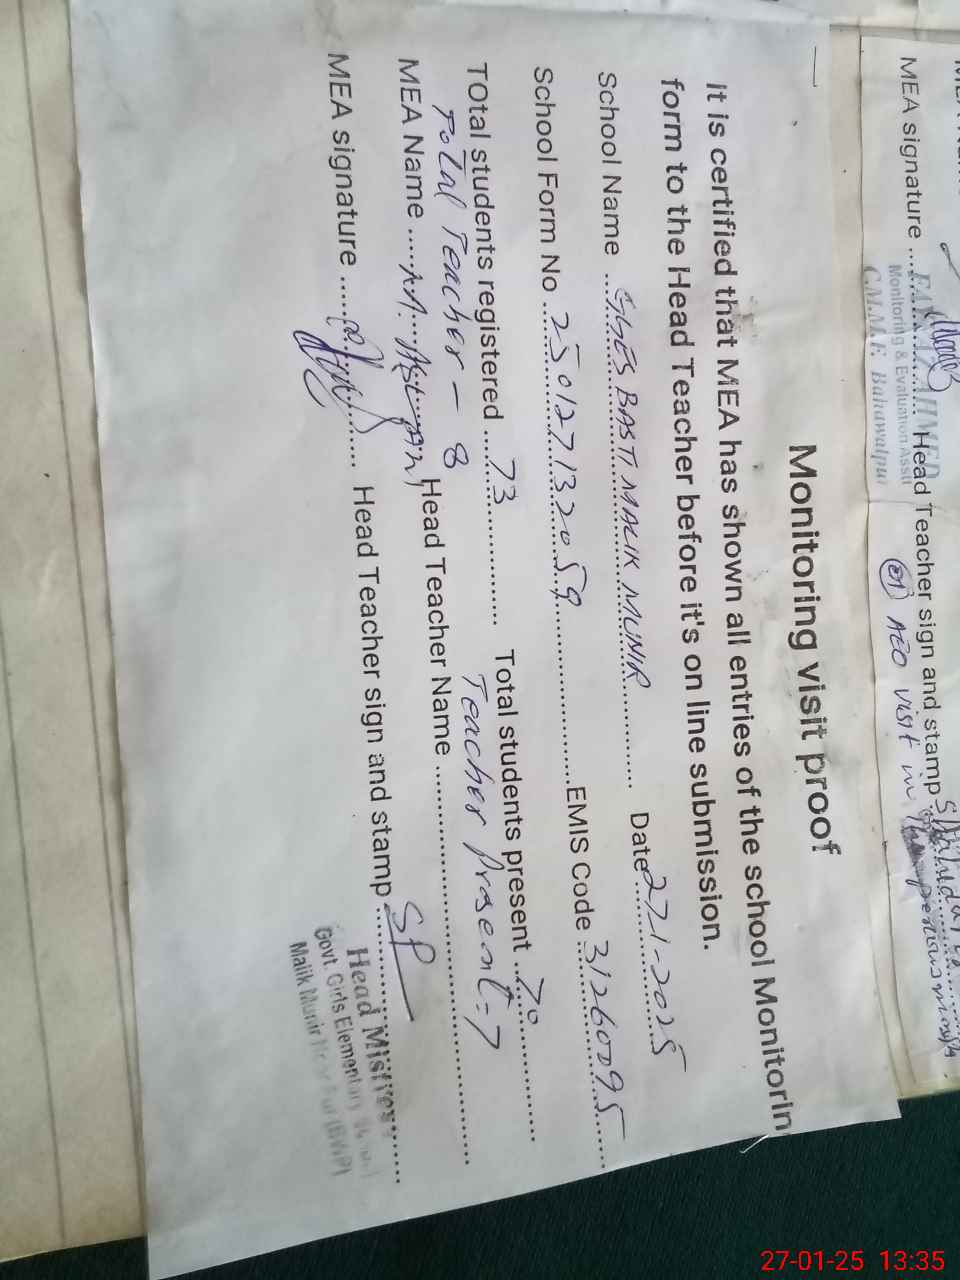 MEA signature
FAYYAZ AHMED
Monitoring & Evaluation Asstt
C.M.M.F. Bahawalpur
Head Teacher sign and stamp
AEO visit in
Monitoring visit proof
It is certified that MEA has shown all entries of the school Monitorin
form to the Head Teacher before it's on line submission.
School Name GGES BASTI MALIK MUNIR Date 27-1-2025
School Form No 250127132059 EMIS Code 31260095
TOtal students registered 73 Total students present 70
Total Teacher - 8 Teacher Present = 7
MEA Name M. Head Teacher Name
MEA signature Head Teacher sign and stamp
Head Mistress
Govt. Girls Elementary School
Malik Munir (BWP)
27-01-25 13:35